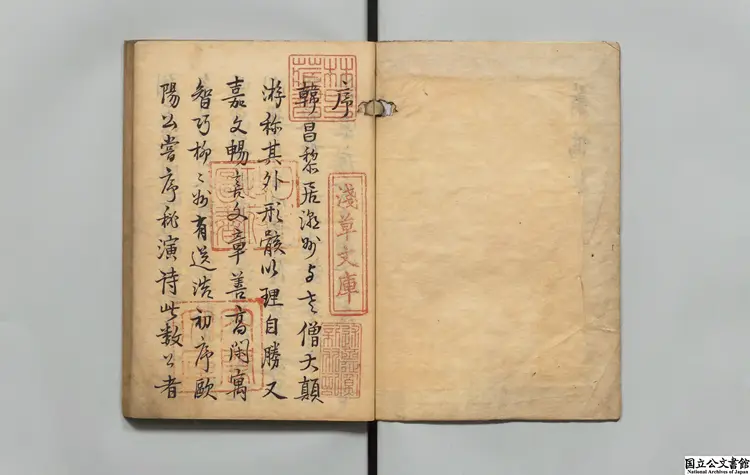 序
韓昌黎居潮州与老僧大顛
游称其外形骸以理自勝又
嘉文暢喜文章善高閑寓
智巧柳〻州有送浩初序歐
陽公嘗序秘演诗此数公者
淺草文庫
国立公文書館
National Archives of Japan